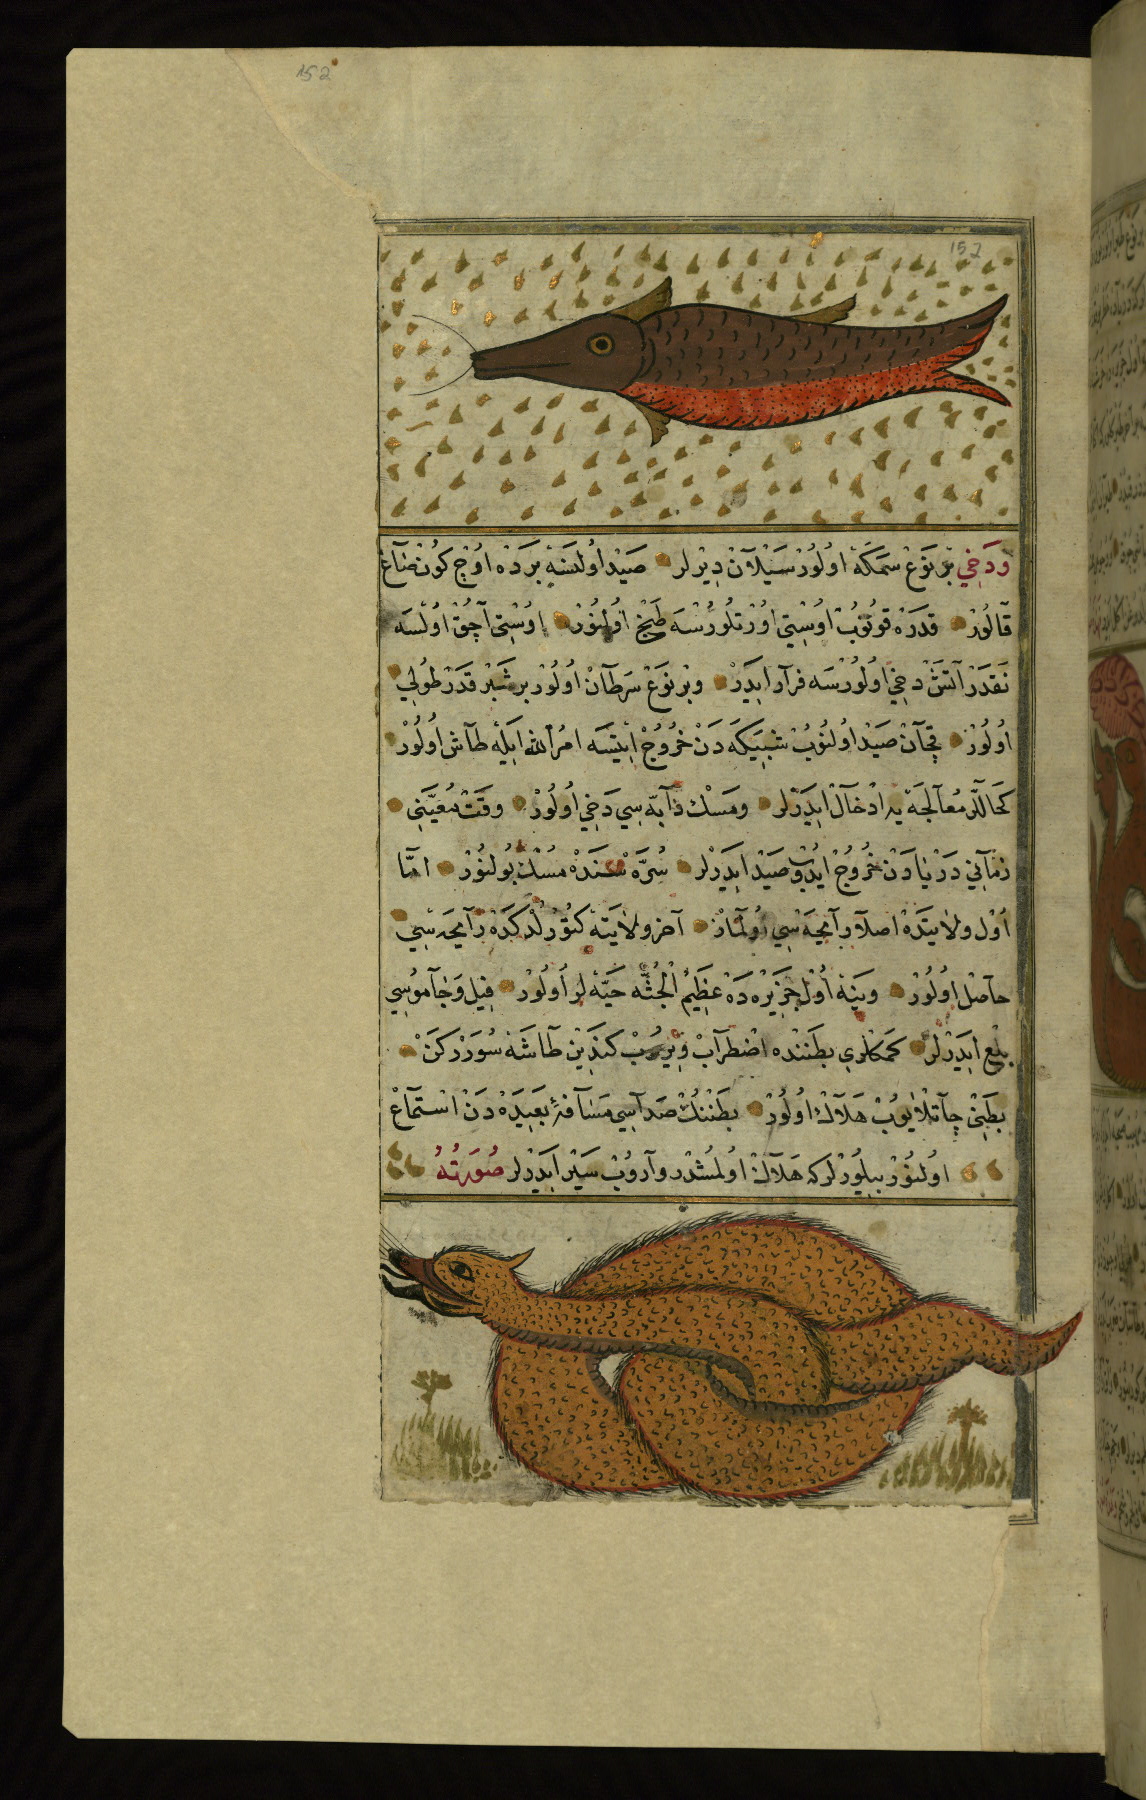 152
152
ودخي بر نوع سمكه اولور سيلان ديرلر صيد اولنسه برده اوج كون صاغ
قالور قدره قويوب اوستي اورتلورسه طبخ اولنور اوستي آچق اولسه
نقدر آتش دخي اولورسه فرار ايدر و بر نوع سرطان اولور بر شبر قدر طولي
اولور قچان صيد اولنوب شبيكه دن خروج ايتسه امر الله ايله طاش اولور
كحاللر معالجه يه ادخال ايدرلر ومسك دابه سي دخي اولور وقت معينى
زماني دريادن خروج ايدوب صيد ايدرلر سره سنده مسك بولنور اما
اول ولايتده اصلا رايحه سي اولماز آخر ولايته كتورلدكده رايحه سي
حاصل اولور وينه اول جزيره ده عظيم الجثه حيه لر اولور فيل و جاموسي
بلع ايدرلر كمكلري بطننده اضطراب ويروب كندين طاشه سوررركن
بطني چاتلايوب هلاك اولور بطننك صداسي مسافۀ بعيده دن استماع
اولنور بيلورلركه هلاك اولمشدر واروب سير ايدرلر صورته